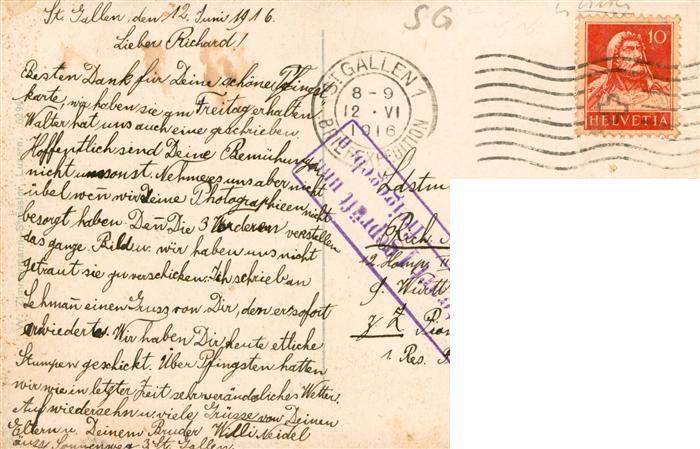 St. Gallen, den 12. Juni 1916.
Lieber Richard!
Besten Dank für Deine schöne Pfingst
karte, wo haben sie am Freitag erhalten
Walter hat uns auch eine geschrieben.
Hoffentlich send Deine Bemühungen
nicht umsonst. Nehme es uns aber nicht
übel wen̄ wir Deine Photographieen nicht
besorgt haben. Den̄ Die 3 Vorderen verstellen
das ganze Bild u. wir haben uns nicht
getraut sie zu verschicken. Ich schrieb an
Lehman̄ einen Gruss von Dir, den er sofort
erwiederte. Wir haben Dir heute etliche
Stumpen geschickt. Über Pfingsten hatten
wir wie in letzter Zeit sehr verändoliches Wetter.
Auf wiedersehn u. viele Grüsse von Deinen
Eltern u. Deinem Bruder Willi Neidel
äuss. Sonnenweg 3 St. Gallen.
SG
ST. GALLEN 1
8-9
12.VI
1916
BRIEFEXPEDITION
10
HELVETIA
Rich
12. Komp.
Württ
z Z Pion
1. Res.